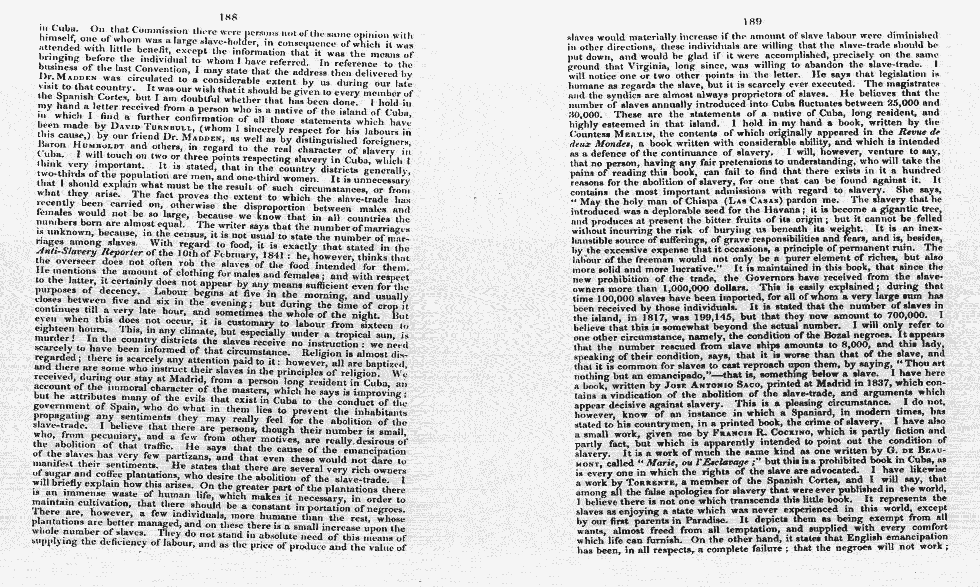 188
in Cuba. On that Commission there were persons not of the same opinion with
himself, one of whom was a large slave-holder, in consequence of which it was
attended with little benefit, except the information that it was the means of
bringing before the individual to whom I have referred. In reference to the
business of the last Convention, I may state that the address then delivered by
Dr. MADDEN was circulated to a considerable extent by us during our late
visit to that country. It was our wish that it should be given to every member of
the Spanish Cortes, but I am doubtful whether that has been done. I hold in
my hand a letter received from a person who is a native of the island of Cuba,
in which I find a further confirmation of all those statements which have
been made by DAVID TURNBULL, (whom I sincerely respect for his labours in
this cause,) by our friend Dr. MADDEN, as well as by distinguished foreigners,
Baron HUMBOLDT and others, in regard to the real character of slavery in
Cuba. I will touch on two or three points respecting slavery in Cuba, which I
think very important. It is stated, that in the country districts generally,
two-thirds of the population are men, and one-third women. It is unnecessary
that I should explain what must be the result of such circumstances, or from
what they arise. The fact proves the extent to which the slave-trade has
recently been carried on, otherwise the disproportion between males and
females would not be so large, because we know that in all countries the
numbers born are almost equal. The writer says that the number of marriages
is unknown, because, in the census, it is not usual to state the number of mar-
riages among slaves. With regard to food, it is exactly that stated in the
Anti-Slavery Reporter of the 10th of February, 1841: he, however, thinks that
the overseer does not often rob the slaves of the food intended for them.
He mentions the amount of clothing for males and females; and with respect
to the latter, it certainly does not appear by any means sufficient even for the
purposes of decency. Labour begins at five in the morning, and usually
closes between five and six in the evening; but during the time of crop it
continues till a very late hour, and sometimes the whole of the night. But
even when this does not occur, it is customary to labour from sixteen to
eighteen hours. This, in any climate, but especially under a tropical sun, is
murder! In the country districts the slaves receive no instruction: we need
scarcely to have been informed of that circumstance. Religion is almost dis-
regarded; there is scarcely any attention paid to it: however, all are baptized,
and there are some who instruct their slaves in the principles of religion. We
received, during our stay at Madrid, from a person long resident in Cuba, an
account of the immoral character of the masters, which he says is improving;
but he attributes many of the evils that exist in Cuba to the conduct of the
government of Spain, who do what in them lies to prevent the inhabitants
propagating any sentiments they may really feel for the abolition of the
slave-trade. I believe that there are persons, though their number is small,
who, from pecuniary, and a few from other motives, are really desirous of
the abolition of that traffic. He says that the cause of the emancipation
of the slaves has very few partizans, and that even these would not dare to
manifest their sentiments. He states that there are several very rich owners
of sugar and coffee plantations, who desire the abolition of the slave-trade. I
will briefly explain how this arises. On the greater part of the plantations there
is an immense waste of human life, which makes it necessary, in order to
maintain cultivation, that there should be a constant importation of negroes.
There are, however, a few individuals, more humane than the rest, whose
plantations are better managed, and on these there is a small increase upon the
whole number of slaves. They do not stand in absolute need of this means of
supplying the deficiency of labour, and as the price of produce and the value of
189
slaves would materially increase if the amount of slave labour were diminished
in other directions, these individuals are willing that the slave-trade should be
put down, and would be glad if it were accomplished, precisely on the same
ground that Virginia, long since, was willing to abandon the slave-trade. I
will notice one or two other points in the letter. He says that legislation is
humane as regards the slave, but it is scarcely ever executed. The magistrates
and the syndics are almost always proprietors of slaves. He believes that the
number of slaves annually introduced into Cuba fluctuates between 25,000 and
30,000. These are the statements of a native of Cuba, long resident, and
highly esteemed in that island. I hold in my hand a book, written by the
Countess MERLIN, the contents of which originally appeared in the Revue de
deux Mondes, a book written with considerable ability, and which is intended
as a defence of the continuance of slavery. I will, however, venture to say,
that no person, having any fair pretensions to understanding, who will take the
pains of reading this book, can fail to find that there exists in it a hundred
reasons for the abolition of slavery, for one that can be found against it. It
contains the most important admissions with regard to slavery. She says,
" May the holy man of Chiapa (LAS CASAS) pardon me. The slavery that he
introduced was a deplorable seed for the Havana; it is become a gigantic tree,
and produces at present the bitter fruits of its origin; but it cannot be felled
without incurring the risk of burying us beneath its weight. It is an inex-
haustible source of sufferings, of grave responsibilities and fears, and is, besides,
by the excessive expense that it occasions, a principle of permanent ruin. The
labour of the freeman would not only be a purer element of riches, but also
more solid and more lucrative." It is maintained in this book, that since the
new prohibition of the trade, the Governors have received from the slave-
owners more than 1,000,000 dollars. This is easily explained; during that
time 100,000 slaves have been imported, for all of whom a very large sum has
been received by those individuals. It is stated that the number of slaves in
the island, in 1817, was 199,145, but that they now amount to 700,000. I
believe that this is somewhat beyond the actual number. I will only refer to
one other circumstance, namely, the condition of the Bozal negroes. It appears
that the number rescued from slave ships amounts to 8,000, and this lady,
speaking of their condition, says, that it is worse than that of the slave, and
that it is common for slaves to cast reproach upon them, by saying, "Thou art
nothing but an emancipado,"—that is, something below a slave. I have here
a book, written by JOSE ANTONIO SACO, printed at Madrid in 1837, which con-
tains a vindication of the abolition of the slave-trade, and arguments which
appear decisive against slavery. This is a pleasing circumstance. I do not,
however, know of an instance in which a Spaniard, in modern times, has
stated to his countrymen, in a printed book, the crime of slavery. I have also
a small work, given me by FRANCIS R. COCKING, which is partly fiction and
partly fact, but which is apparently intended to point out the condition of
slavery. It is a work of much the same kind as one written by G. DE BEAU-
MONT, called " Marie, ou l'Esclavage;" but this is a prohibited book in Cuba, as
is every one in which the rights of the slave are advocated. I have likewise
a work by TORRENTE, a member of the Spanish Cortes, and I will say, that
among all the false apologies for slavery that were ever published in the world,
I believe there is not one which transcends this little book. It represents the
slaves as enjoying a state which was never experienced in this world, except
by our first parents in Paradise. It depicts them as being exempt from all
wants, almost freed from all temptation, and supplied with every comfort
which life can furnish. On the other hand, it states that English emancipation
has been, in all respects, a complete failure; that the negroes will not work;